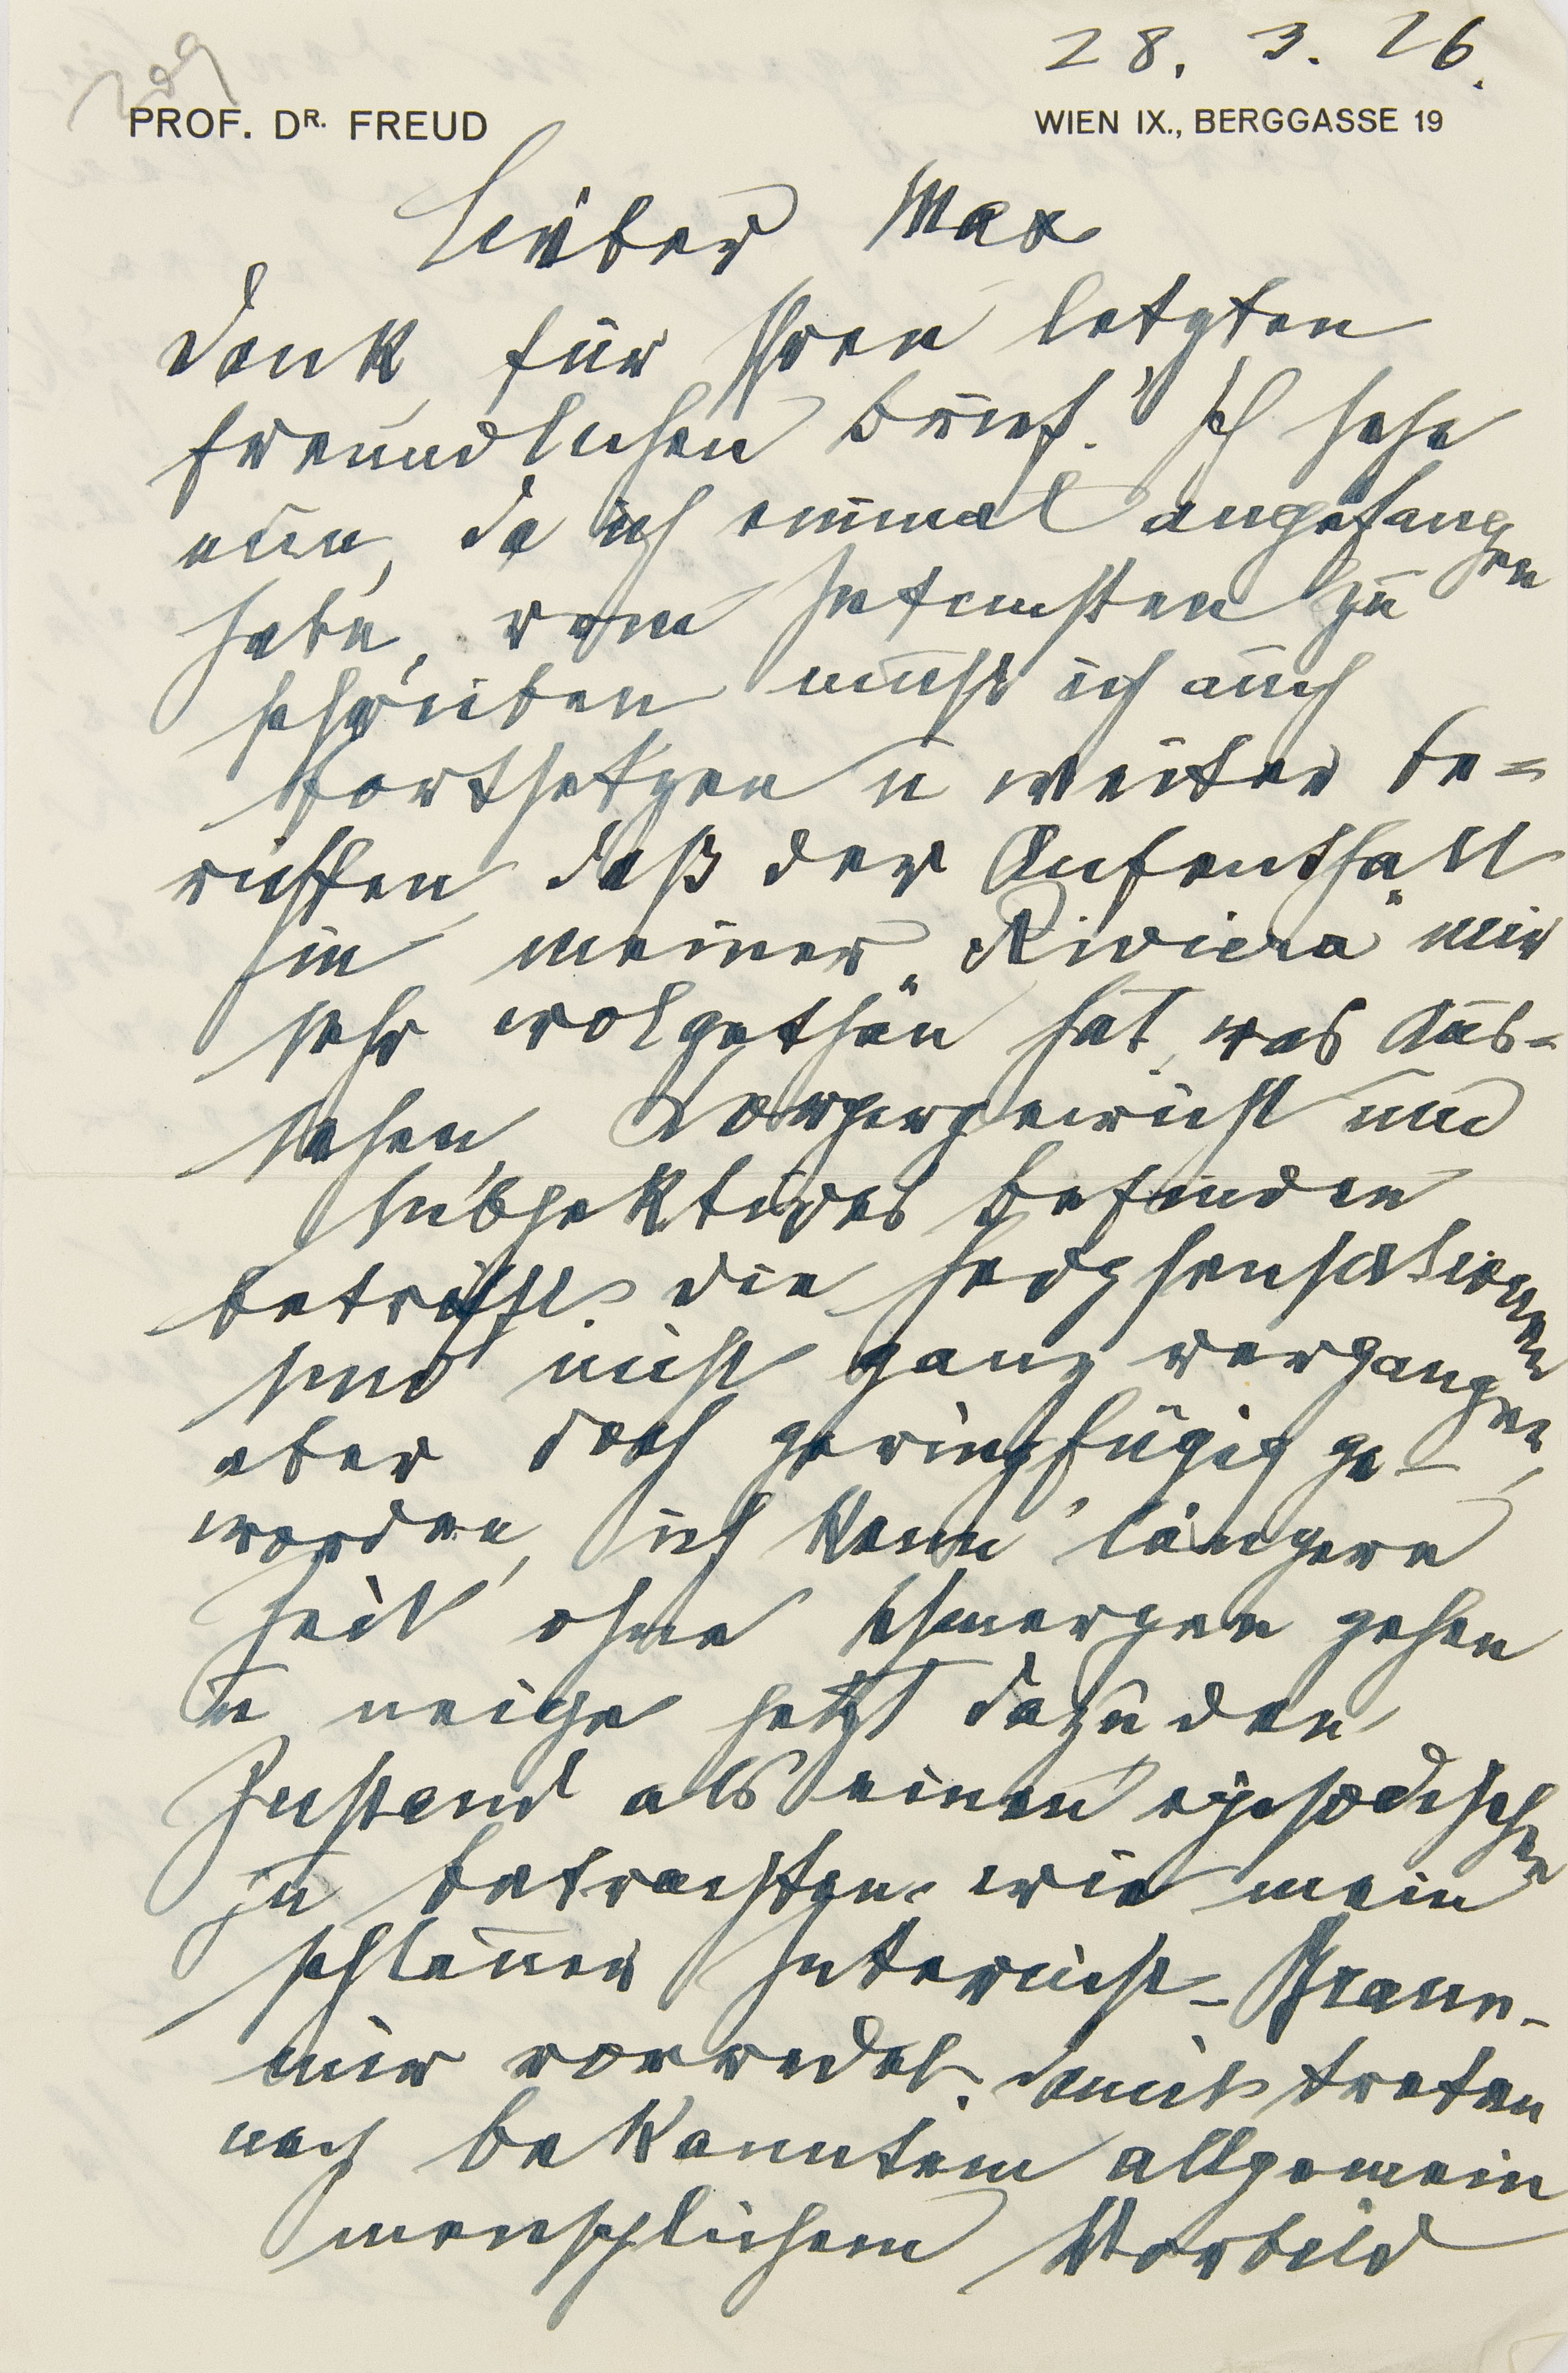 28. 3. 26.
PROF. DR. FREUD
WIEN IX., BERGGASSE 19
Lieber Max
Dank für Ihren letzten
freundlichen Brief. Ich sehe
nun, da ich einmal angefangen
habe, vom Intimsten zu
schreiben muß ich auch
fortsetzen u weiter be=
richten daß der Aufenthalt
in meiner „Riviera" mir
sehr wolgethan hat, was Aus-
sehen, Körpergewicht und
subjektives Befinden
betrifft. Die Herzsensationen
sind nicht ganz vergangen,
aber doch geringfügig ge-
worden, ich kann längere
Zeit ohne Schmerzen gehen
u neige jetzt dazu den
Zustand als einen episodischen
zu betrachten wie mein
schlauer Internist Braun
mir vorredet. Damit treten
nach bekanntem allgemein
menschlichem Vorbild